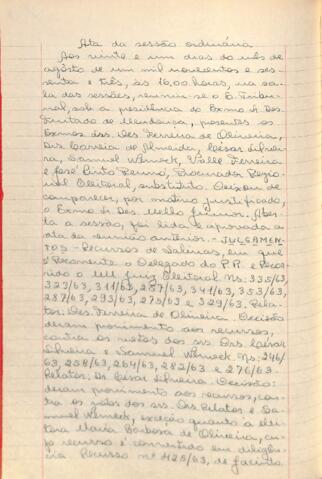 Ata da sessão ordinária
Aos vinte e um dias do mês de
agôsto de um mil novecentos e ses-
senta e três, às 16,00 horas, na sa-
la das sessões, reuniu-se o E. Tribu-
nal, sob a presidência do Exmo. Sr. Des.
Furtado de Mendonça, presentes os
Exmos. srs. Des. Ferreira de Oliveira,
Drs. Correia de Almeida, César Silvei-
ra, Samuel Werneck, Valle Ferreira
e José Pinto Renno, Procurador Regio-
nal Eleitoral, substituto. Deixou de
comparecer, por motivo justificado,
o Exmo. Sr. Des. Mello Júnior. Aber-
ta a sessão, foi lida e aprovada a
ata da reunião anterior. - JULGAMEN-
TOS - Recursos de Salinas, em que
é Recorrente o Delegado do P.R. e Recor-
rido o MM Juiz Eleitoral Ns: 335/63,
323/63, 311/63, 257/63, 341/63, 353/63,
287/63, 293/63, 275/63 e 329/63. Rela-
tor: Des. Ferreira de Oliveira. Decisão
deram provimento aos recursos,
contra os votos dos srs. Drs. César
Silveira e Samuel Werneck. Ns: 246/
63, 258/63, 264/63, 282/63 e 276/63.
Relator: Dr. César Silveira. Decisão:
deram provimento aos recursos, con-
tra os votos dos srs. Drs. Relator e Sa-
muel Werneck, exceção quanto a elei-
tora Maria Barbosa de Oliveira, cu-
jo recurso é convertido em diligên-
cia Recurso nº 425/63, de Jacinto.